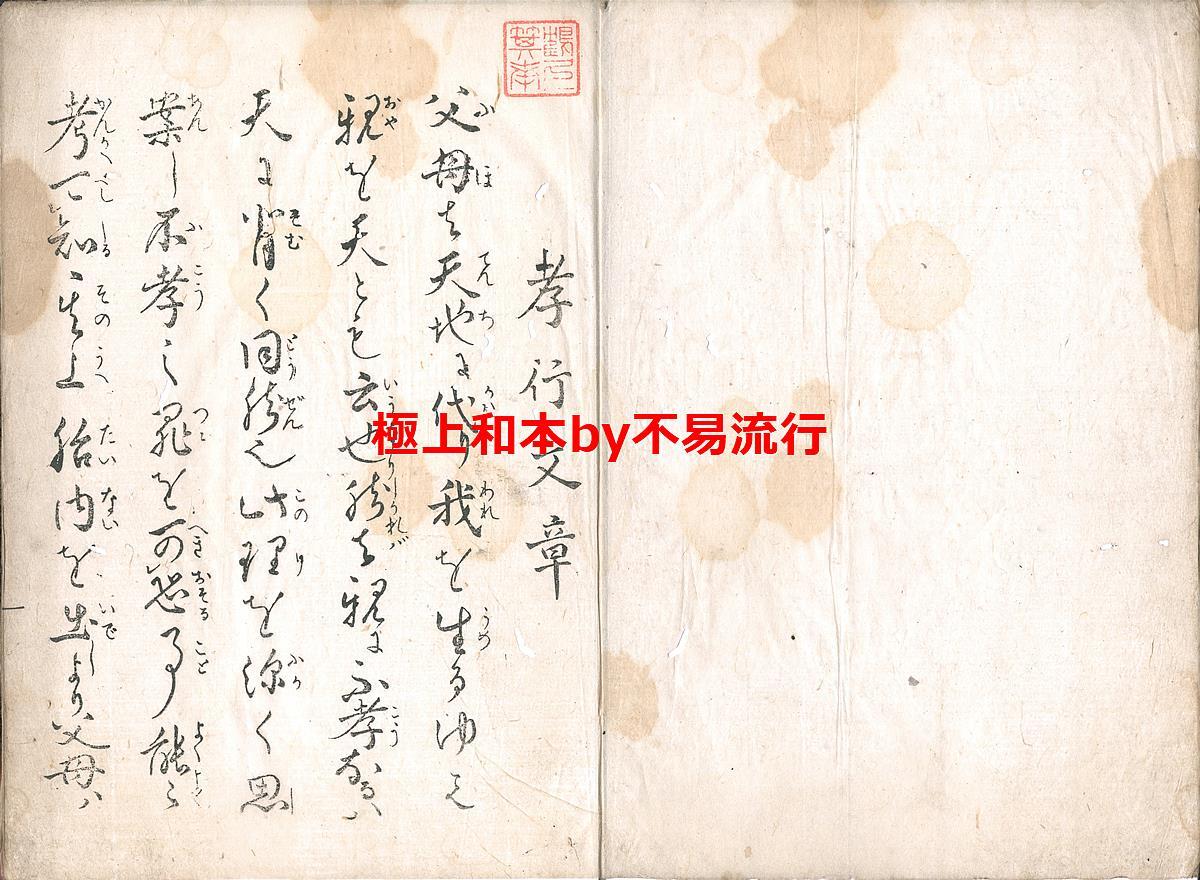 孝行文章
父母は天地に代り我を生るゆへ
親を天とも云也然は親に不孝なるハ
天に背く同然也此理を深く思
案し不孝之罪を可恐事能々
考て可知其上胎内を出しより父母ハ
極上和本by不易流行